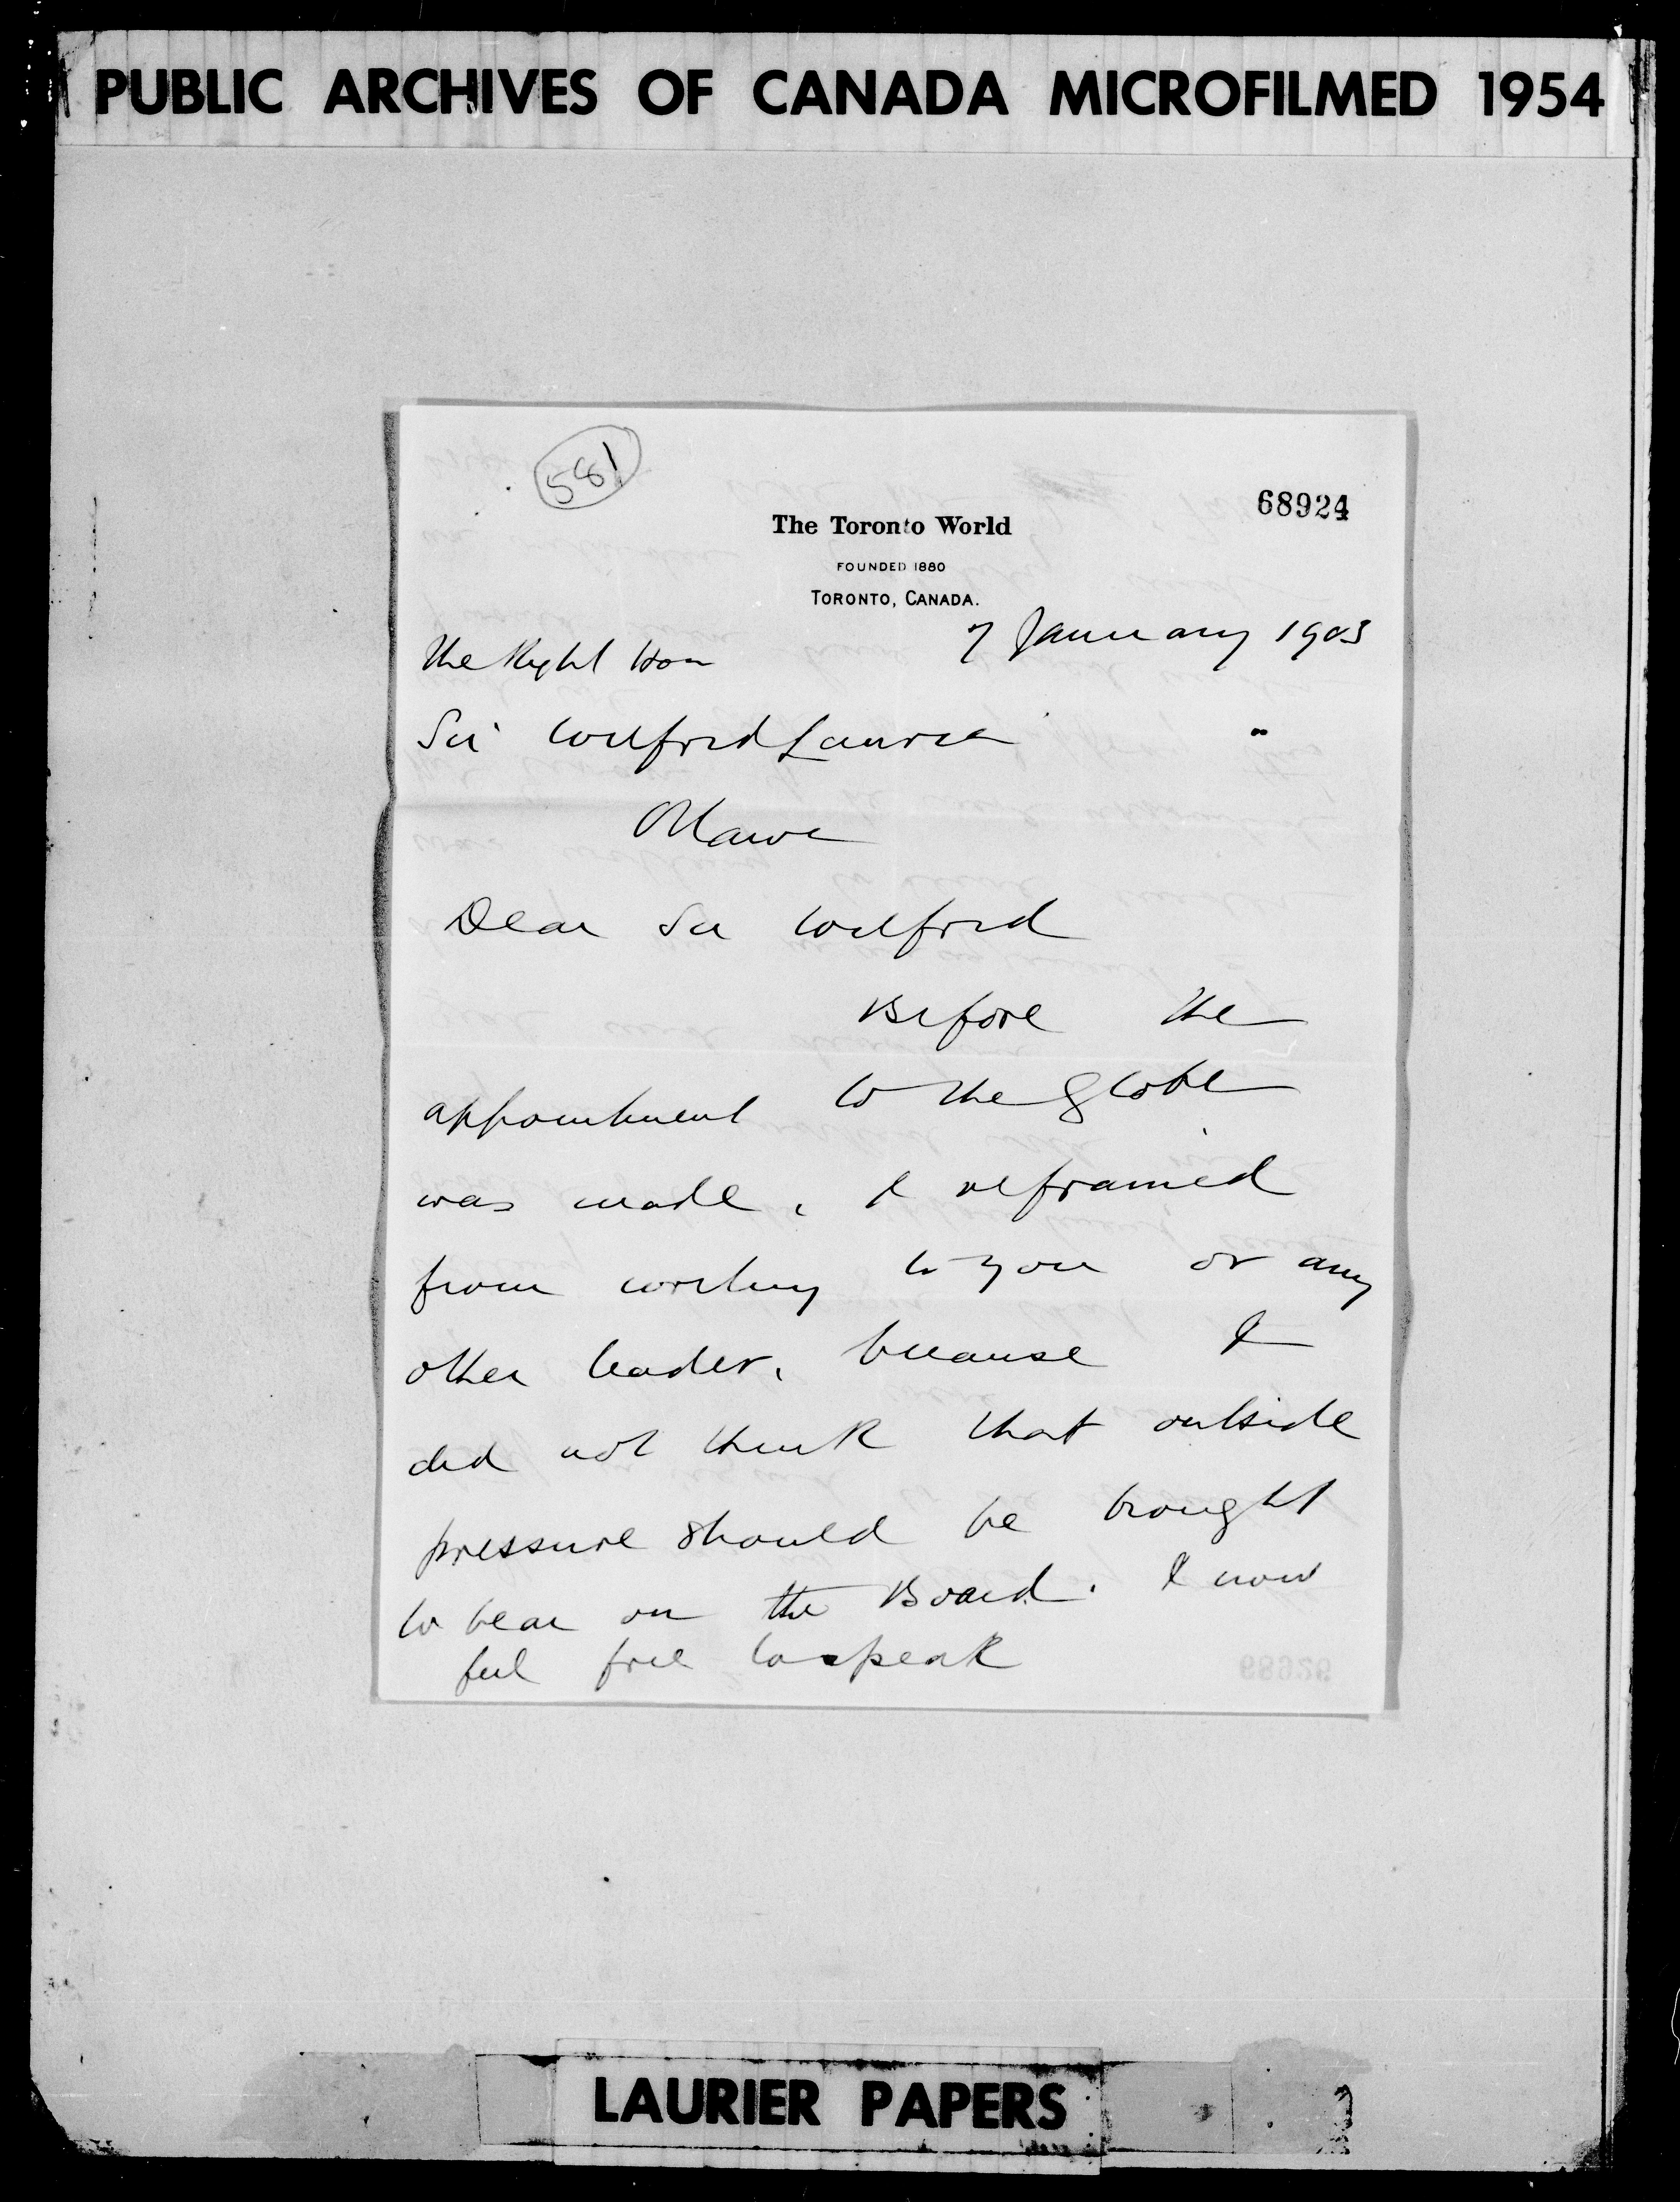 PUBLIC ARCHIVES OF CANADA MICROFILMED 1954
581
68924
The Toronto World
FOUNDED 1880
TORONTO, CANADA.
7 January 1903
The Right Hon
Sir Wilfrid Laurier
Ottawa
Dear Sir Wilfrid
Before the
appointment to the Globe
was made, I refrained
from writing to you or any
other leader, because I
did not think that outside
pressure should be brought
to bear on the Board. I now
feel free to speak
68926
LAURIER PAPERS